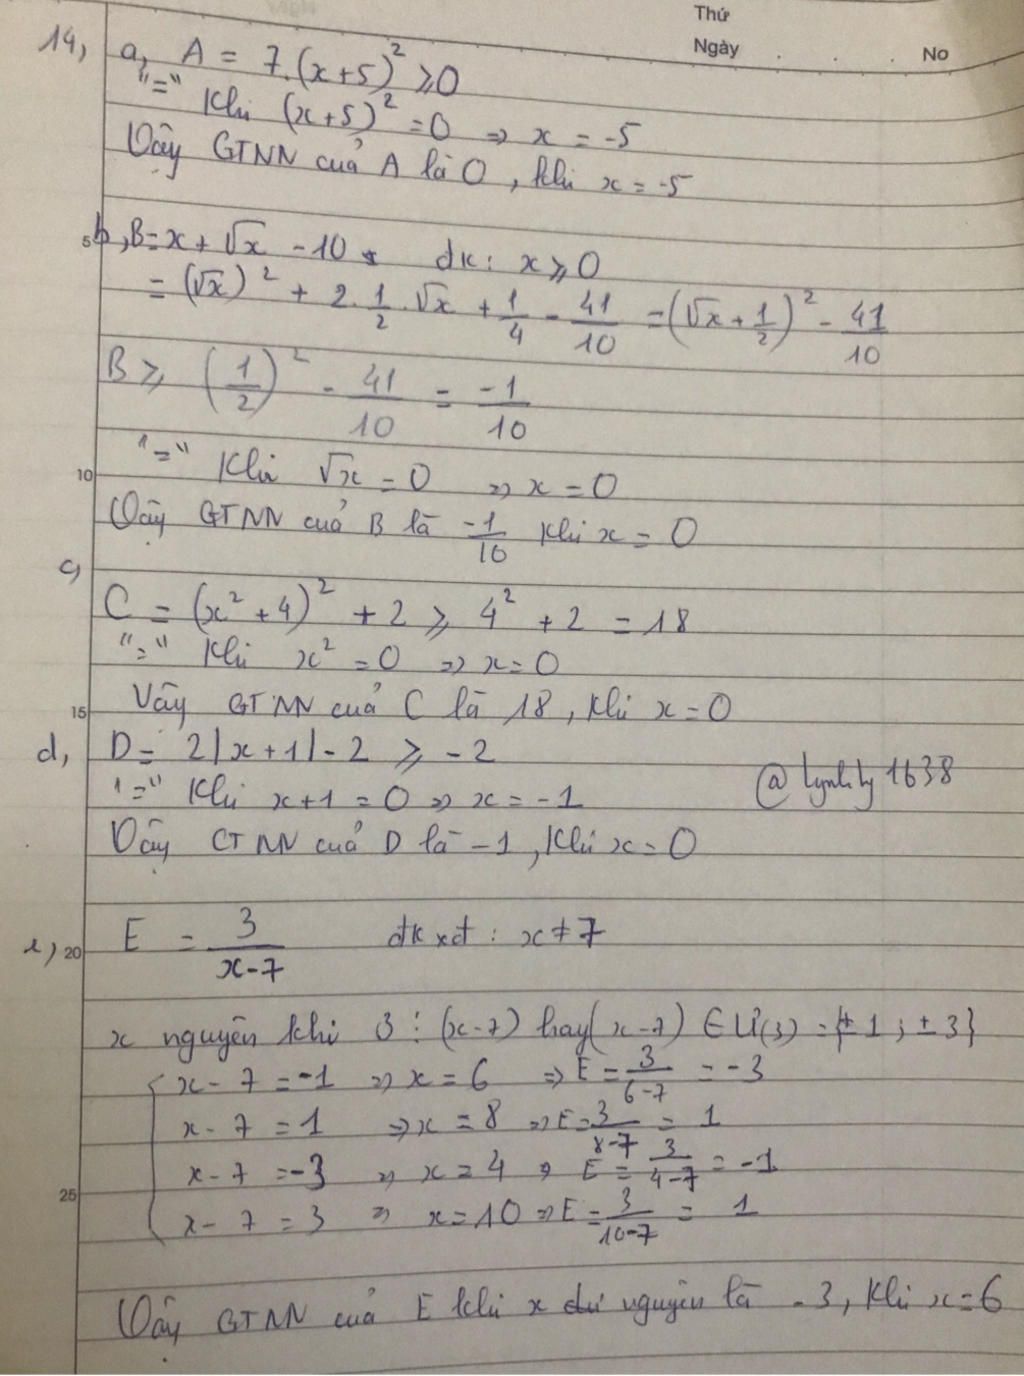 Thứ
Ngày . . . No
14,
a, A = 7.(x+5)² ≥ 0
"=" Khi (x+5)² = 0 => x = -5
Vậy GTNN của A là 0, khi x = -5
5 b, B = x + √x - 10 đk: x ≥ 0
= (√x)² + 2. 1/2 . √x + 1/4 - 41/10 = (√x + 1/2)² - 41/10
B ≥ (1/2)² - 41/10 = -1/10
10 "=" Khi √x = 0 => x = 0
Vậy GTNN của B là -1/10 khi x = 0
c,
C = (x² + 4)² + 2 ≥ 4² + 2 = 18
"=" Khi x² = 0 => x = 0
15 Vậy GTNN của C là 18, khi x = 0
d, D = 2|x+1| - 2 ≥ -2
"=" Khi x+1 = 0 => x = -1
@lynhly1638
Vậy GTNN của D là -1, Khi x = 0
e, 20 E = 3/(x-7) đkxđ: x ≠ 7
x nguyên khi 3 ⋮ (x-7) hay (x-7) ∈ Ư(3) = {±1; ±3}
x - 7 = -1 => x = 6 => E = 3/(6-7) = -3
x - 7 = 1 => x = 8 => E = 3/(8-7) = 1
25 x - 7 = -3 => x = 4 => E = 3/(4-7) = -1
x - 7 = 3 => x = 10 => E = 3/(10-7) = 1
Vậy GTNN của E khi x nguyên là -3, Khi x = 6